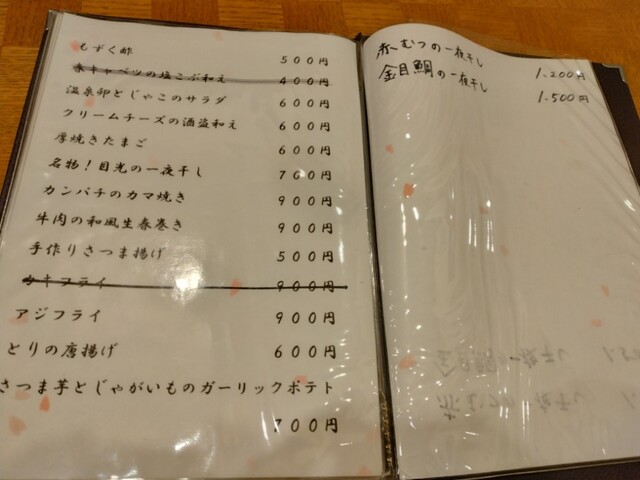 もずく酢 500円
春キャベツの塩こぶ和え 400円
温泉卵とじゃこのサラダ 600円
クリームチーズの酒盗和え 600円
厚焼きたまご 600円
名物！目光の一夜干し 700円
カンパチのカマ焼き 900円
牛肉の和風生春巻き 900円
手作りさつま揚げ 500円
カキフライ 900円
アジフライ 900円
とりの唐揚げ 600円
さつま芋とじゃがいものガーリックポテト
700円
赤むつの一夜干し 1.200円
金目鯛の一夜干し 1.500円